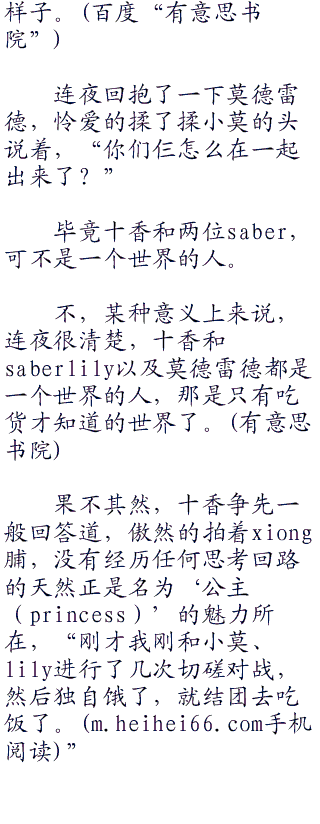 样子。(百度“有意思书
院”)
连夜回抱了一下莫德雷
德，怜爱的揉了揉小莫的头
说着，“你们仨怎么在一起
出来了？”
毕竟十香和两位saber，
可不是一个世界的人。
不，某种意义上来说，
连夜很清楚，十香和
saberlily以及莫德雷德都是
一个世界的人，那是只有吃
货才知道的世界了。(有意思
书院)
果不其然，十香争先一
般回答道，傲然的拍着xiong
脯，没有经历任何思考回路
的天然正是名为‘公主
（princess）’的魅力所
在，“刚才我刚和小莫、
lily进行了几次切磋对战，
然后独自饿了，就结团去吃
饭了。(m.heihei66.com手机
阅读)”